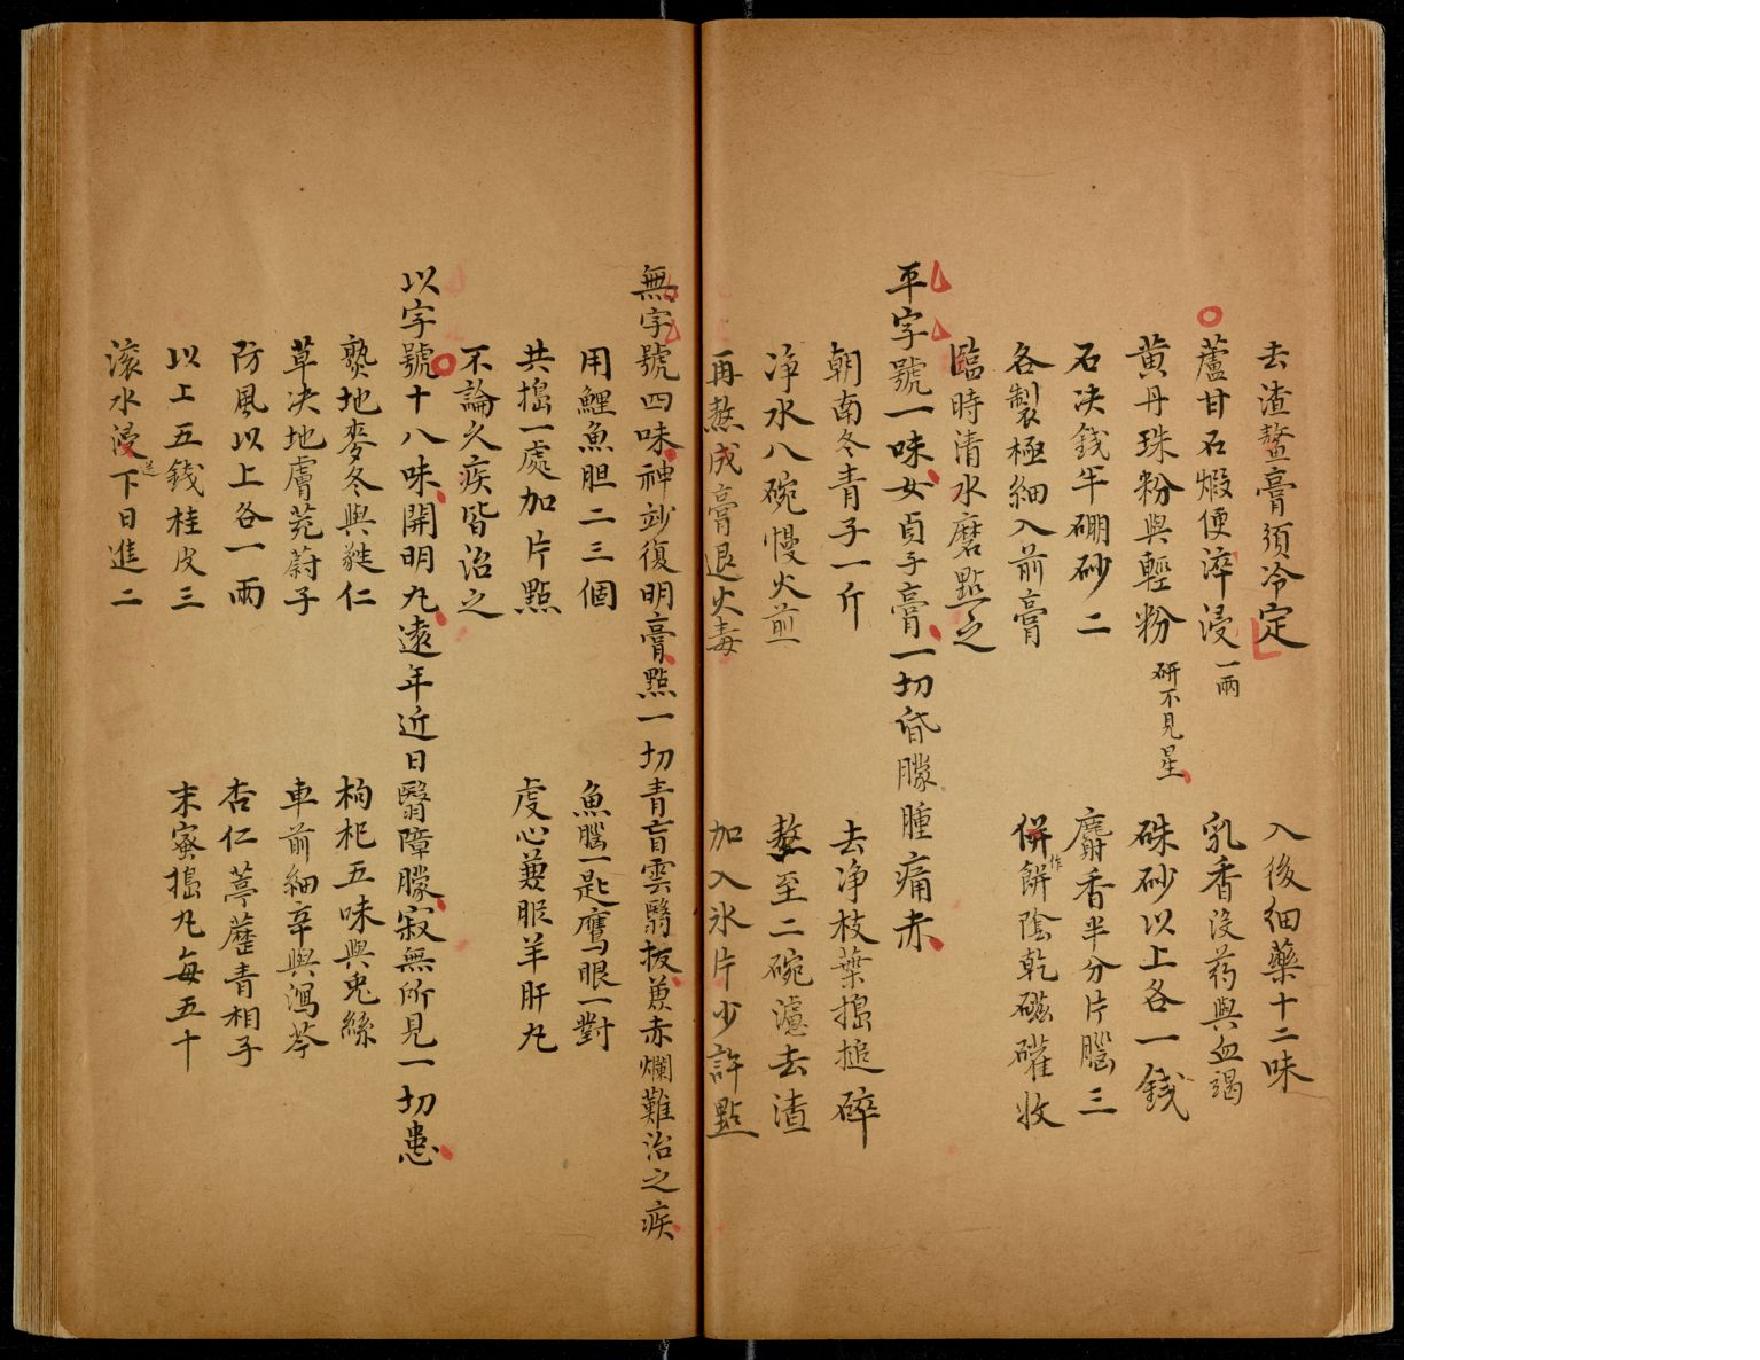 去渣熬膏須冷定　入後細藥十二味
蘆甘石煅便淬浸一兩　乳香没药與血竭
黄丹珠粉與輕粉研不見星　硃砂以上各一錢
石决錢半硼砂二　麝香半分片腦三
各製極細入前膏　併作餅陰乾磁礶收
臨時清水磨點之
平字號一味女貞子膏一切昏朦腫痛赤
朝南冬青子一斤　去净枝葉搗搥碎
净水八碗慢火煎　熬至二碗濾去渣
再熬成膏退火毒　加入氷片少許點
無字號四味神妙復明膏點一切青盲雲翳扳兼赤爛難治之疾
用鯉魚胆二三個　魚腦一匙鷹眼一對
共搗一處加片點　虔心兼服羊肝丸
不論久疾皆治之
以字號十八味開明丸遠年近日翳障朦寂無所見一切患
熟地麥冬與蕤仁　枸杞五味與兎絲
草决地膚茺蔚子　車前細辛與瀉芩
防風以上各一兩　杏仁葶藶青相子
以上五錢桂皮三　末蜜搗丸每五十
滚水浸送下日進二